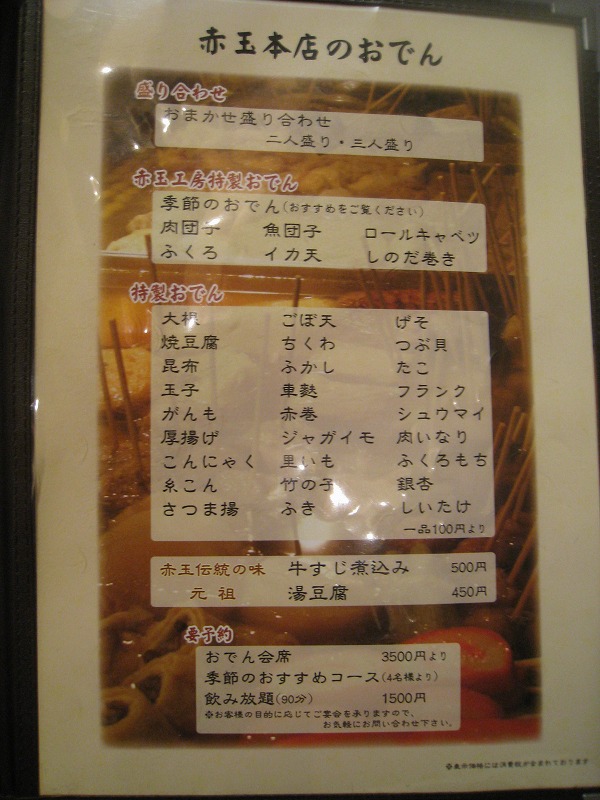 赤玉本店のおでん
盛り合わせ
おまかせ盛り合わせ
二人盛り・三人盛り
赤玉工房特製おでん
季節のおでん(おすすめをご覧ください)
肉団子 魚団子 ロールキャベツ
ふくろ イカ天 しのだ巻き
特製おでん
大根 ごぼ天 げそ
焼豆腐 ちくわ つぶ貝
昆布 ふかし たこ
玉子 車麩 フランク
がんも 赤巻 シュウマイ
厚揚げ ジャガイモ 肉いなり
こんにゃく 里いも ふくろもち
糸こん 竹の子 銀杏
さつま揚 ふき しいたけ
一品100円より
赤玉伝統の味 牛すじ煮込み 500円
元祖 湯豆腐 450円
要予約
おでん会席 3500円より
季節のおすすめコース(4名様より)
飲み放題(90分) 1500円
※お客様の目的に応じてご宴会を承りますので、
お気軽にお問い合わせ下さい。
※表示価格には消費税が含まれております